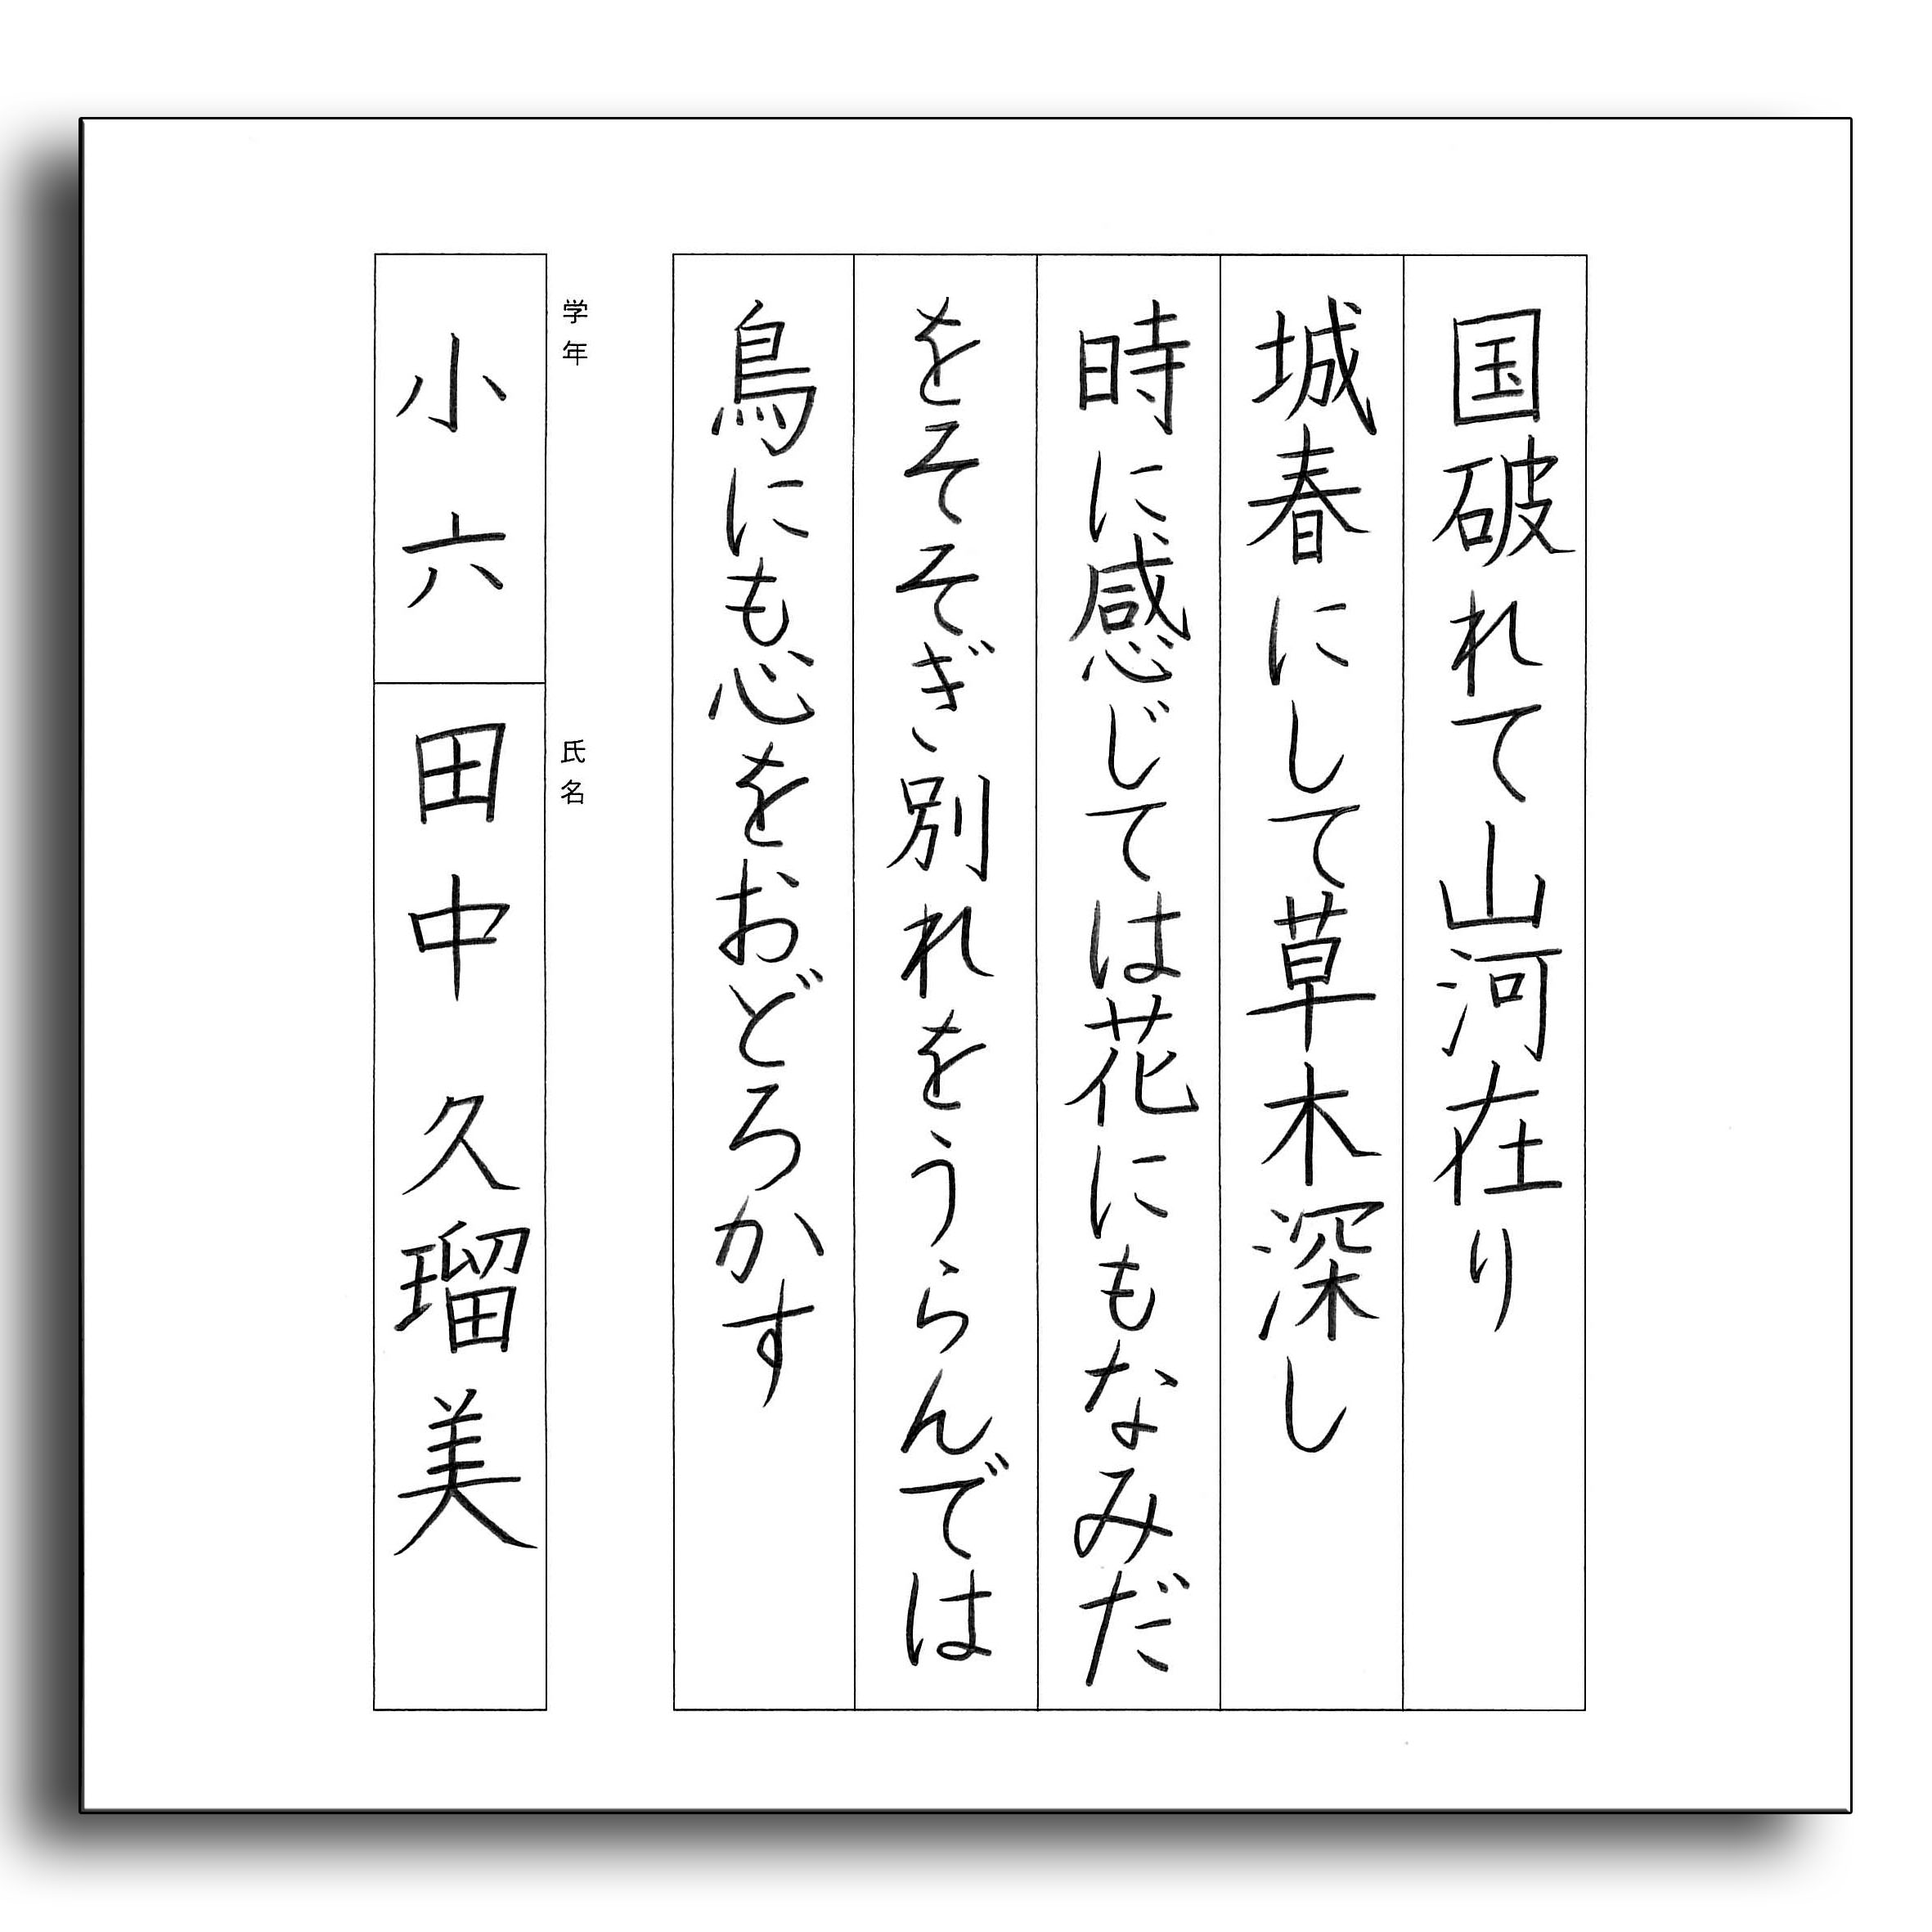 国破れて山河在り
城春にして草木深し
時に感じては花にもなみだ
をそそぎ別れをうらんでは
鳥にも心をおどろかす
学年
小六
氏名
田中久瑠美